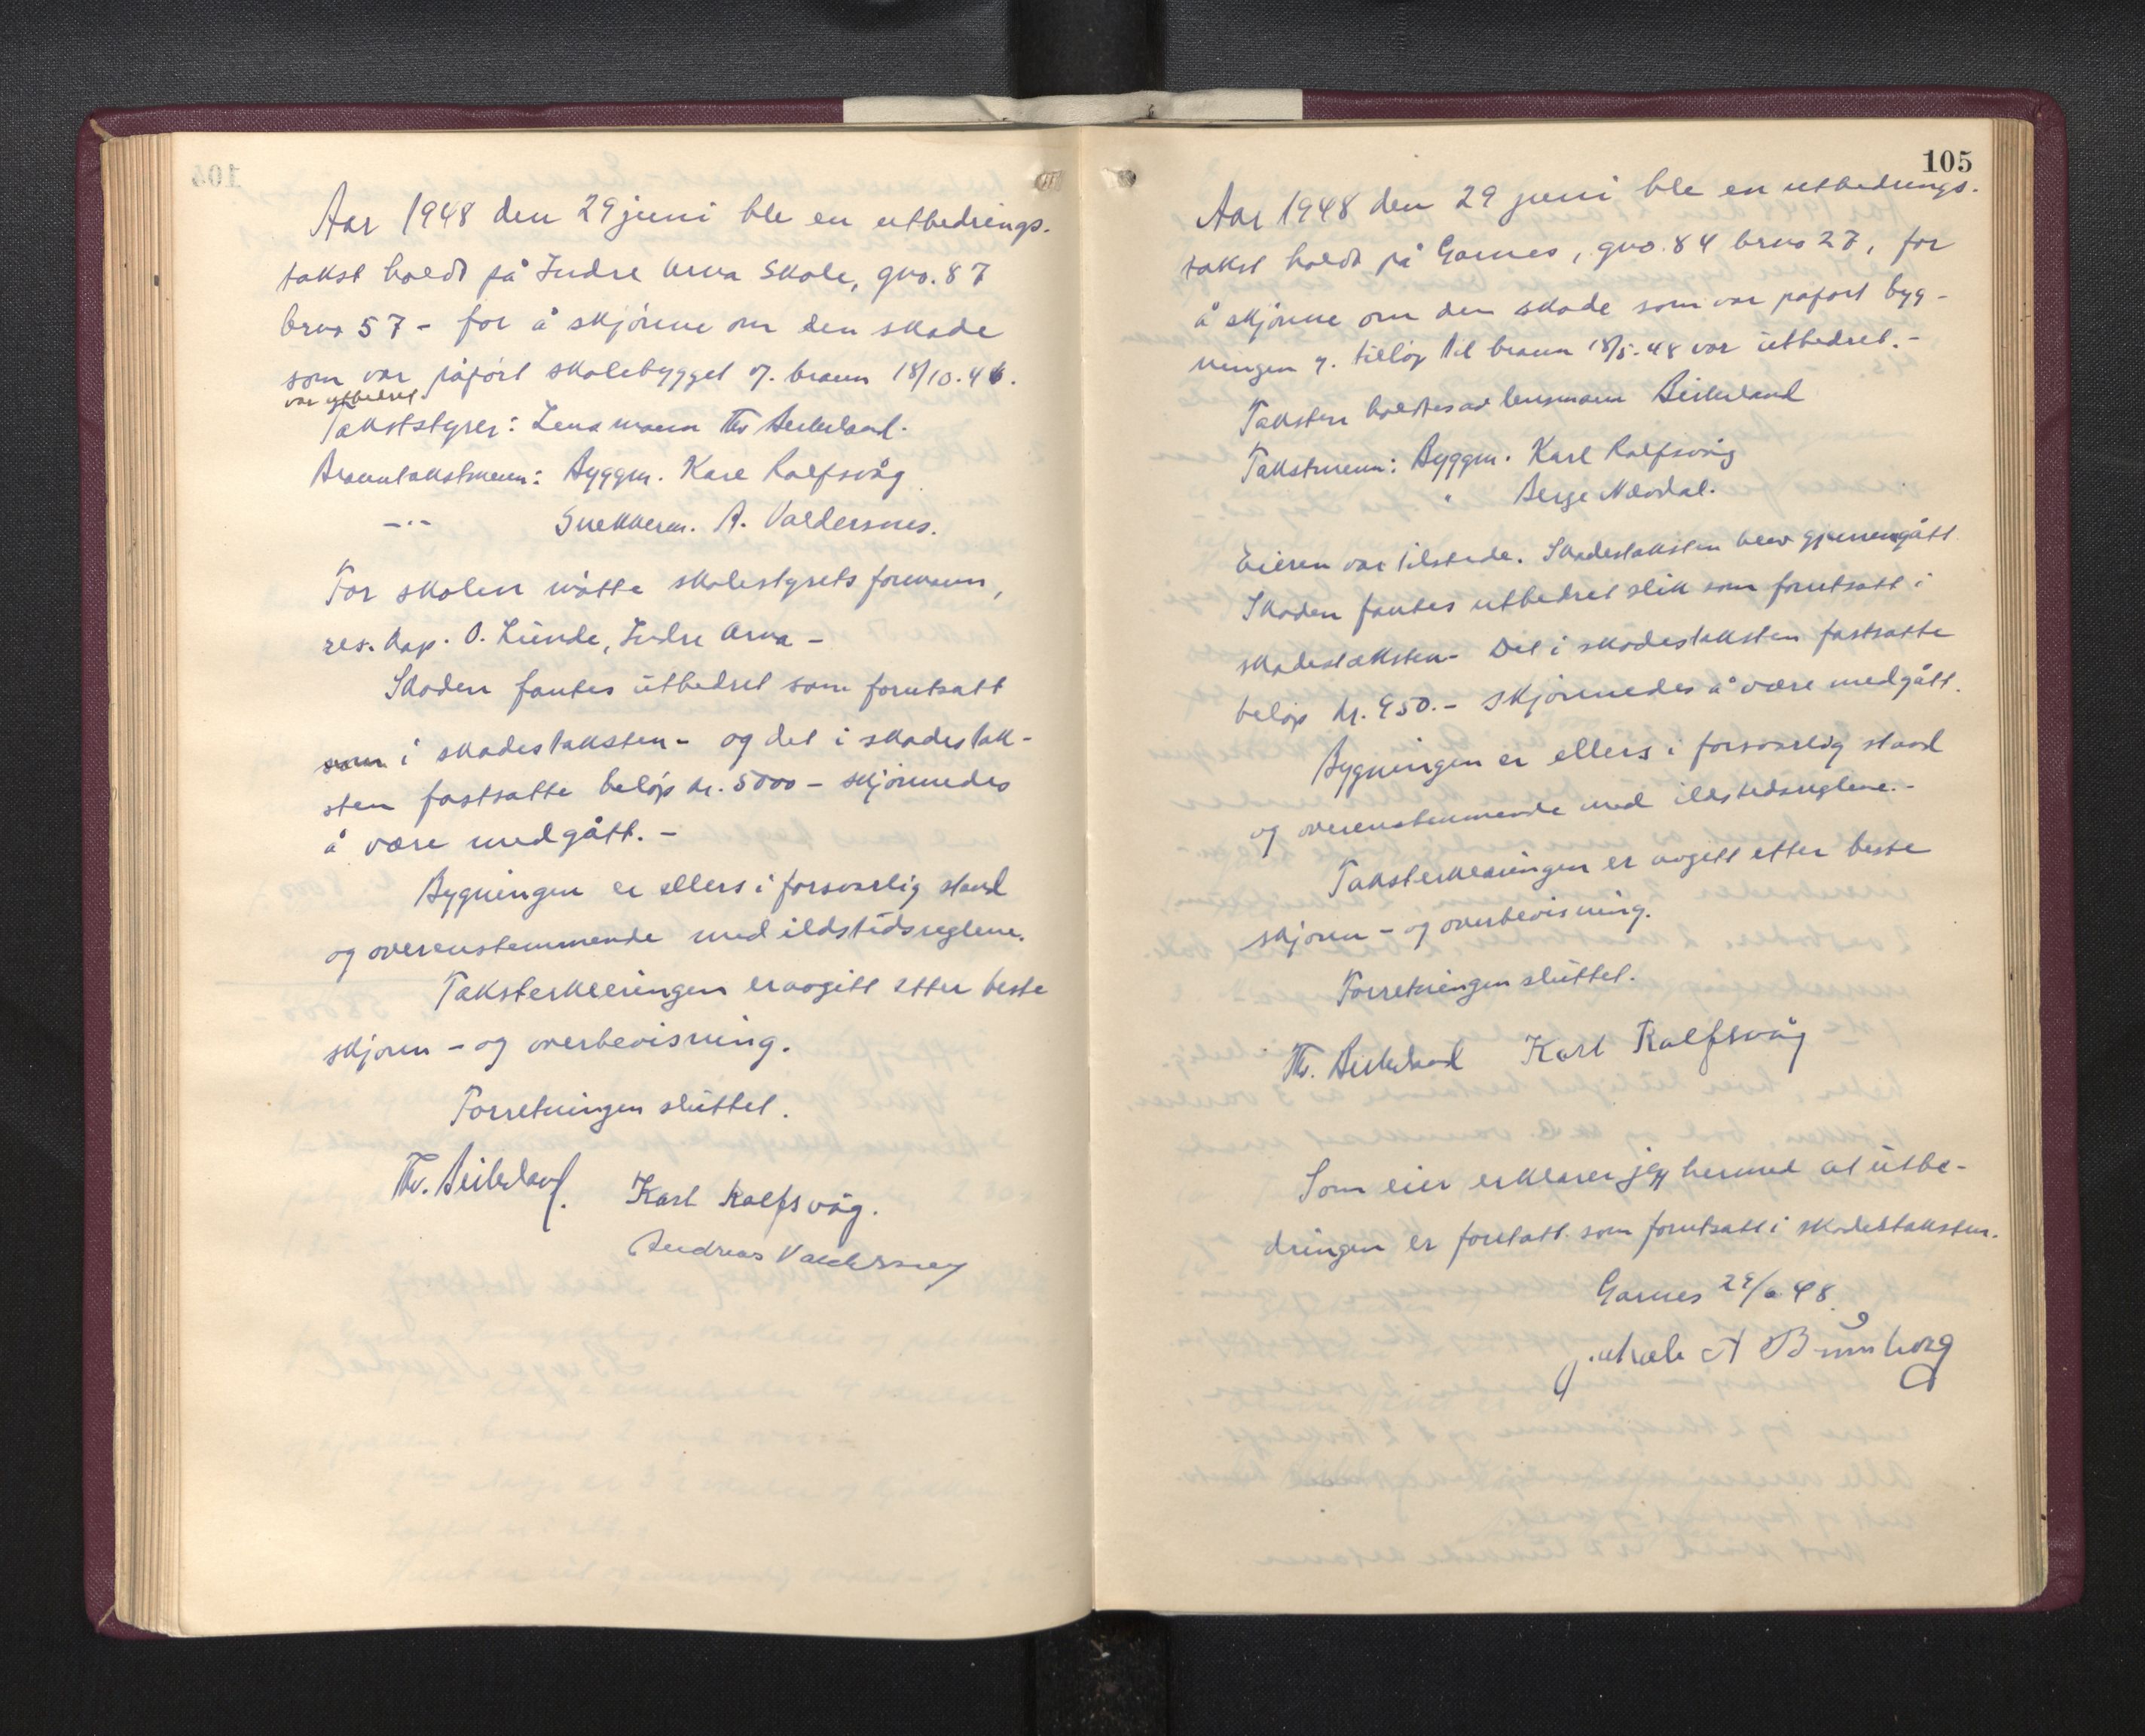 Aar 1948 den 29 juni ble en utbedrings-
takst holdt på Indre Arna Skole, gno. 87
brno 57 - for å skjønne om den skade
som var påført skolebygget v. brann 18/10.46.
var utbedret
Takststyrer: Lensmann Th.
Branntakstmenn: Byggm. Karl Ralfsvåg
-"- Snekkerm. A. Valdersnes.
For skolen møtte skolestyrets formann,
res. kap. O. Lunde, Indre Arna -
Skaden fantes utbedret som forutsatt
som i skadestaksten - og det i skadestak-
sten fastsatte beløp kr. 5000 - skjønnedes
å være medgått. -
Bygningen er ellers i forsvarlig stand
og overenstemmende med ildstedsreglene.
Taksterklæringen er avgitt etter beste
skjønn - og overbevisning.
Forretningen sluttet.
Th.
Karl Ralfsvåg.
Andreas Valdersnes
105
Aar 1948 den 29 juni ble en utbedrings-
takst holdt på Garnes, gno. 84 brno 27, for
å skjønne om den skade som var påført byg-
ningen v. tilløp til brann 18/5-48 var utbedret. -
Taksten holdtes av lensmann
Takstmenn: Byggm. Karl Ralfsvåg
" Berge Nævdal.
Eieren var tilstede. Skadestaksten blev gjennemgått
Skaden fantes utbedret slik som forutsatt i
skadestaksten - Det i skadestaksten fastsatte
beløp kr. 950.- skjønnedes å være medgått.
Bygningen er ellers i forsvarlig stand
og overenstemmende med ildstedsreglene. -
Taksterklæringen er avgitt etter beste
skjønn - og overbevisning.
Forretningen sluttet.
Th. Karl Ralfsvåg
Som eier erklærer jeg hermed at utbe-
dringen er foretatt som forutsatt i skadestaksten.
Garnes 29/6 48.
A